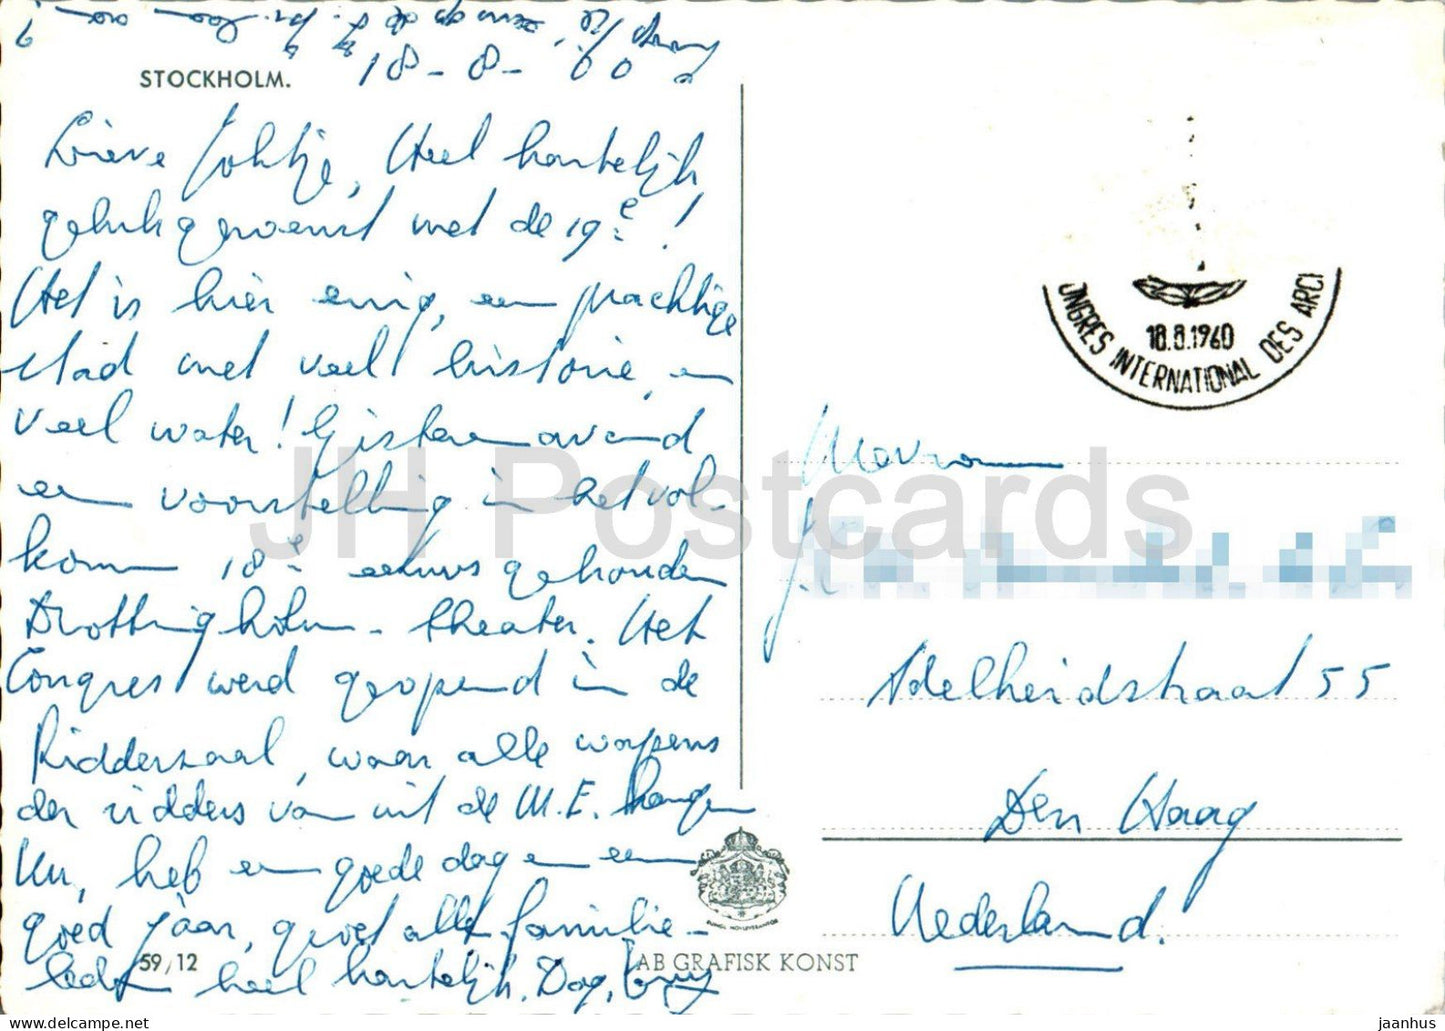 18-8-60
STOCKHOLM.
Lieve Johtje, Heel hartelijk
gelukgewenst met de 19e!
Het is hier enig, een prachtige
stad met veel historie, en
veel water! Gisteren avond
een voorstelling in het vol-
komen 18e eeuws gehouden
Drottningholm-theater. Het
Congres werd geopend in de
Ridderzaal, waar alle wapens
der ridders van uit de M.E. hangen
Nu, heb een goede dag en een
goed jaar, groet alle familie-
leden heel hartelijk. Dag,
59/12
AB GRAFISK KONST
ONGRES INTERNATIONAL DES ARCI
18.8.1960
Mevrouw
Adelheidstraat 55
Den Haag
Nederland.
JH Postcards
jaanhus | ecrater.com